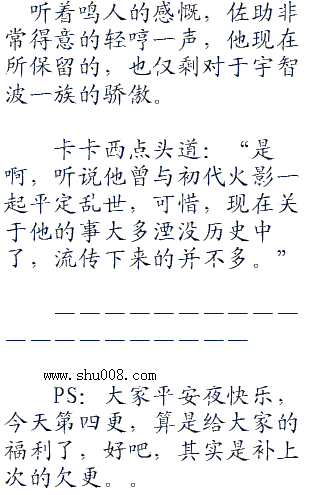 听着鸣人的感慨，佐助非
常得意的轻哼一声，他现在
所保留的，也仅剩对于宇智
波一族的骄傲。
卡卡西点头道：“是
啊，听说他曾与初代火影一
起平定乱世，可惜，现在关
于他的事大多湮没历史中
了，流传下来的并不多。”
－－－－－－－－－－
－－－－－－－－－－
www.shu008.com
PS：大家平安夜快乐，
今天第四更，算是给大家的
福利了，好吧，其实是补上
次的欠更。。